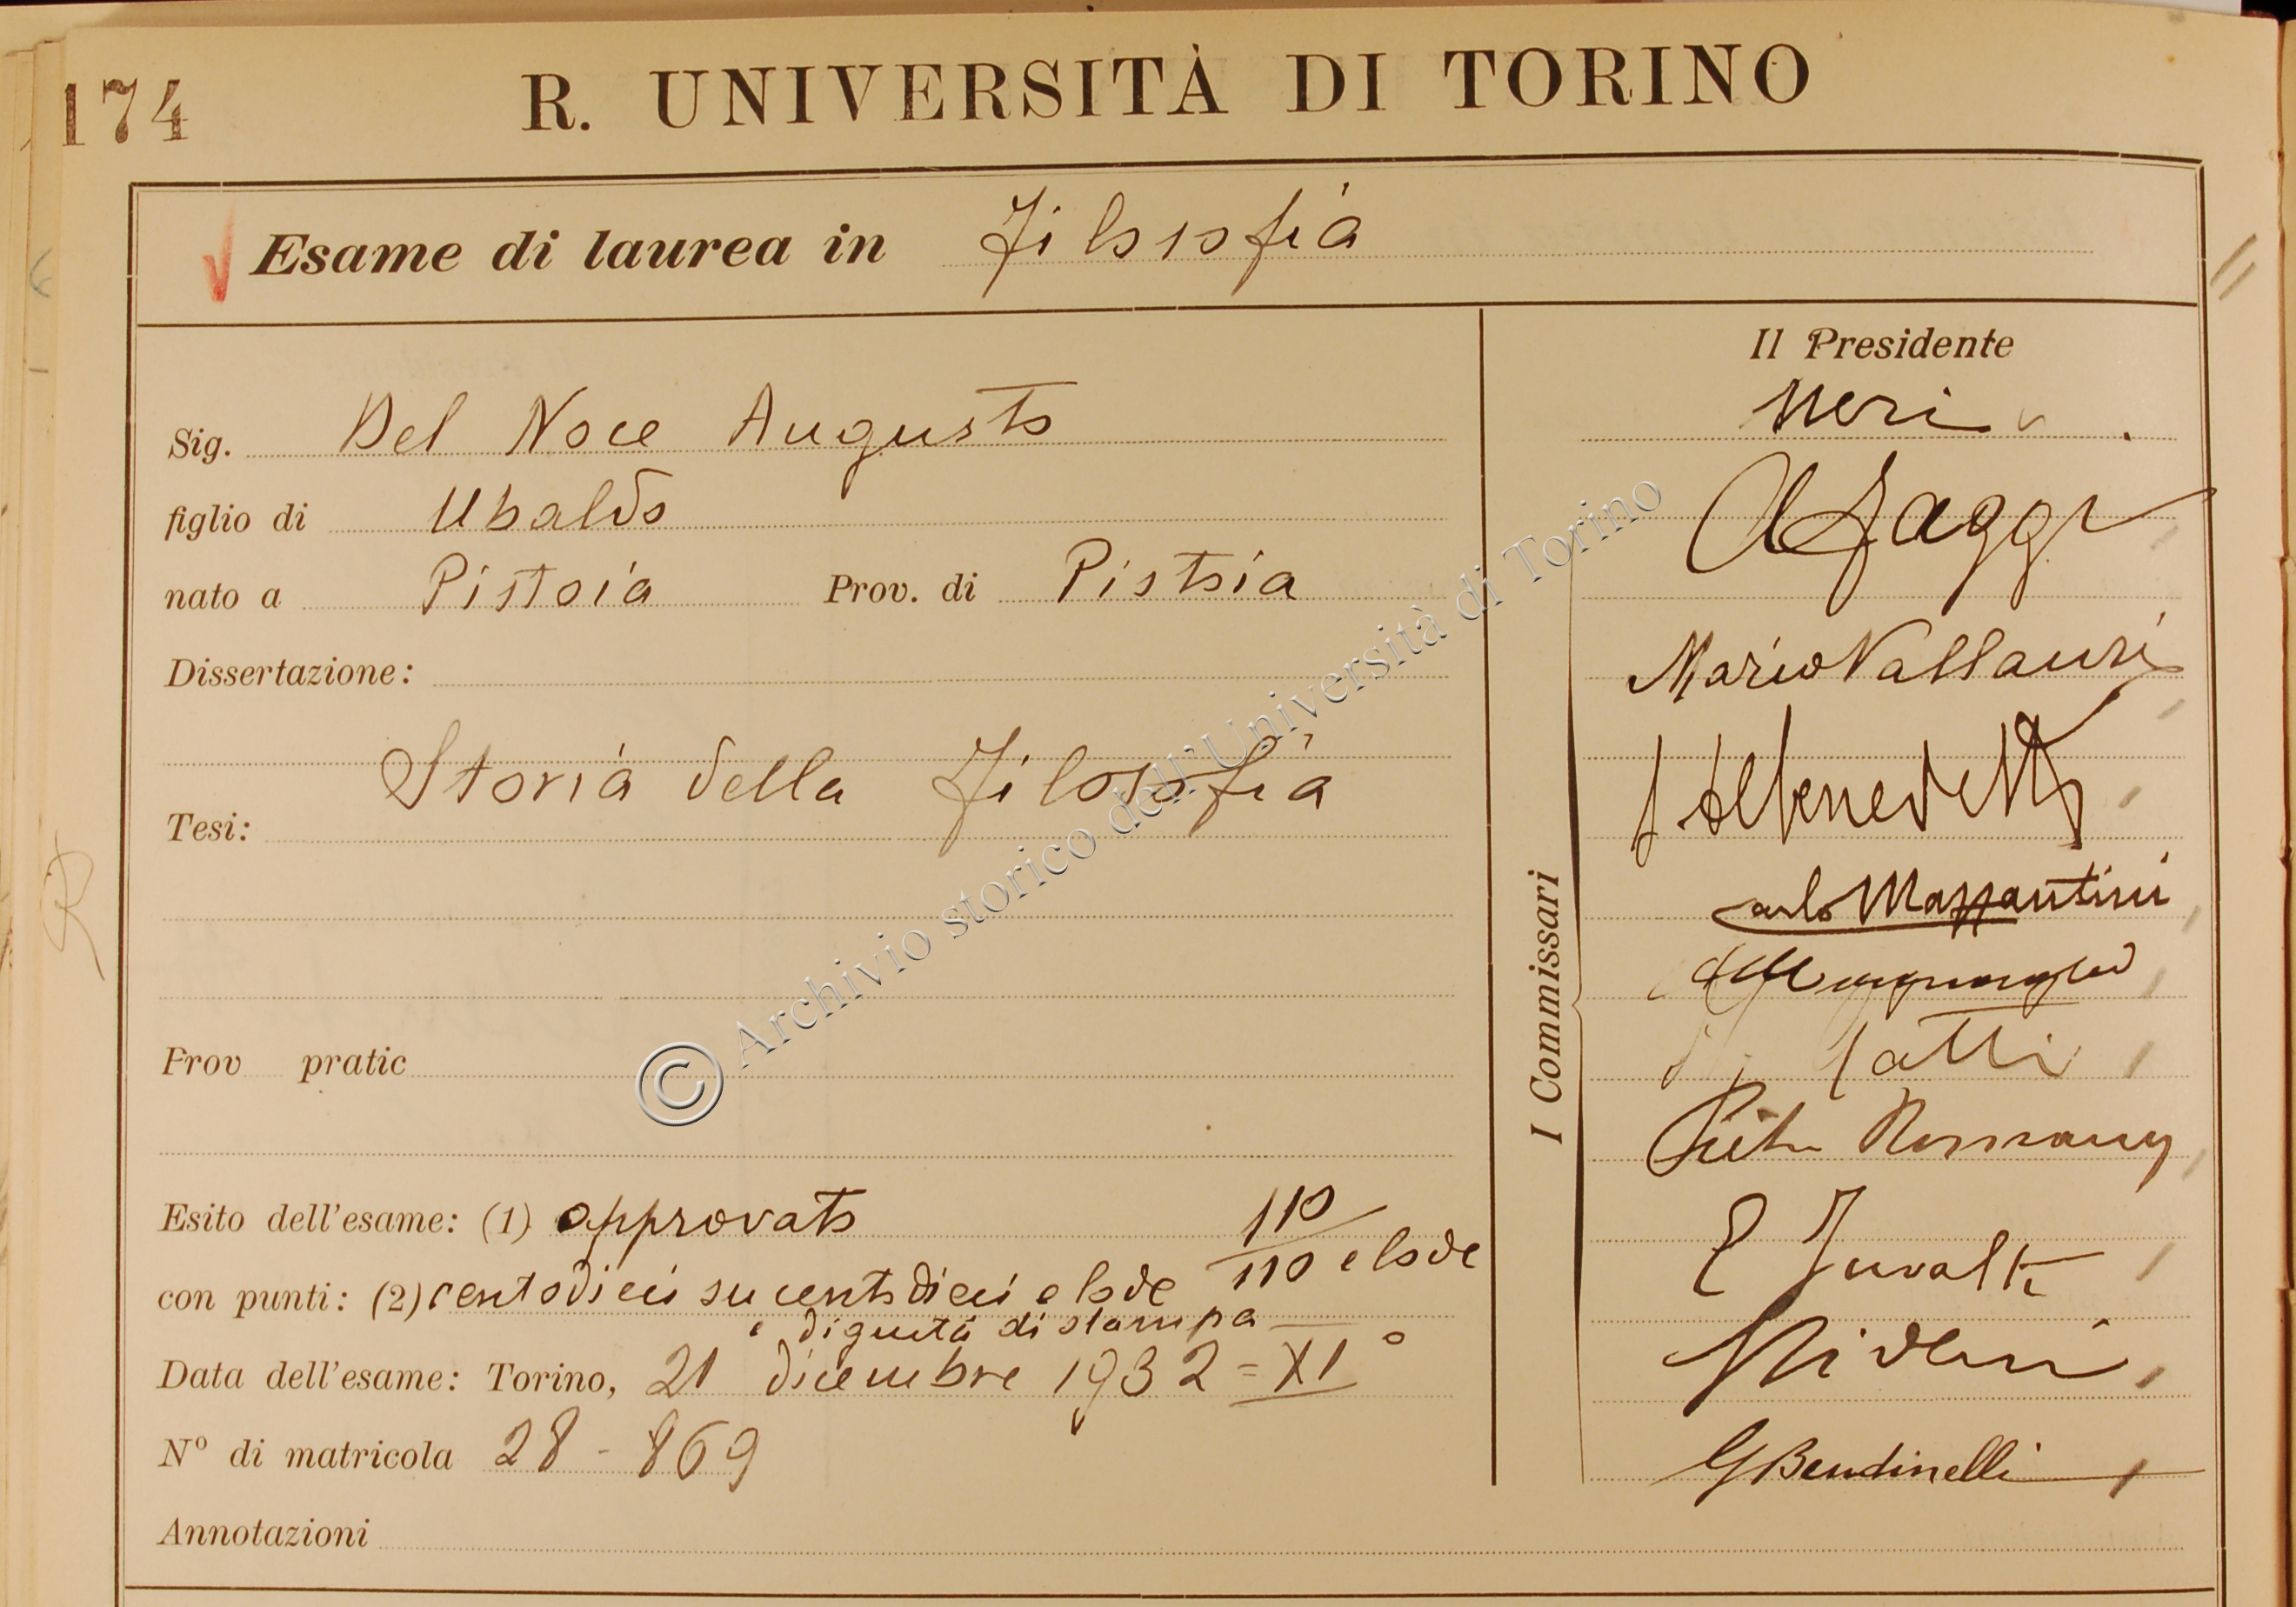 174
R. UNIVERSITÀ DI TORINO
Esame di laurea in Filosofia
Sig. Del Noce Augusto
figlio di Ubaldo
nato a Pistoia Prov. di Pistoia
Dissertazione:
Storia della Filosofia
Tesi:
Prov pratic
Esito dell'esame: (1) approvato 110/110 e lode
con punti: (2) centodieci su centodieci e lode
e dignità di stampa
Data dell'esame: Torino, 21 dicembre 1932 = XI°
N° di matricola 28 - 869
Annotazioni
Il Presidente
Neri
A Faggi
Mario Vallauri
I Commissari
Carlo Mazzantini
Gatti
E Juvalta
G Bendinelli
© Archivio storico dell'Università di Torino